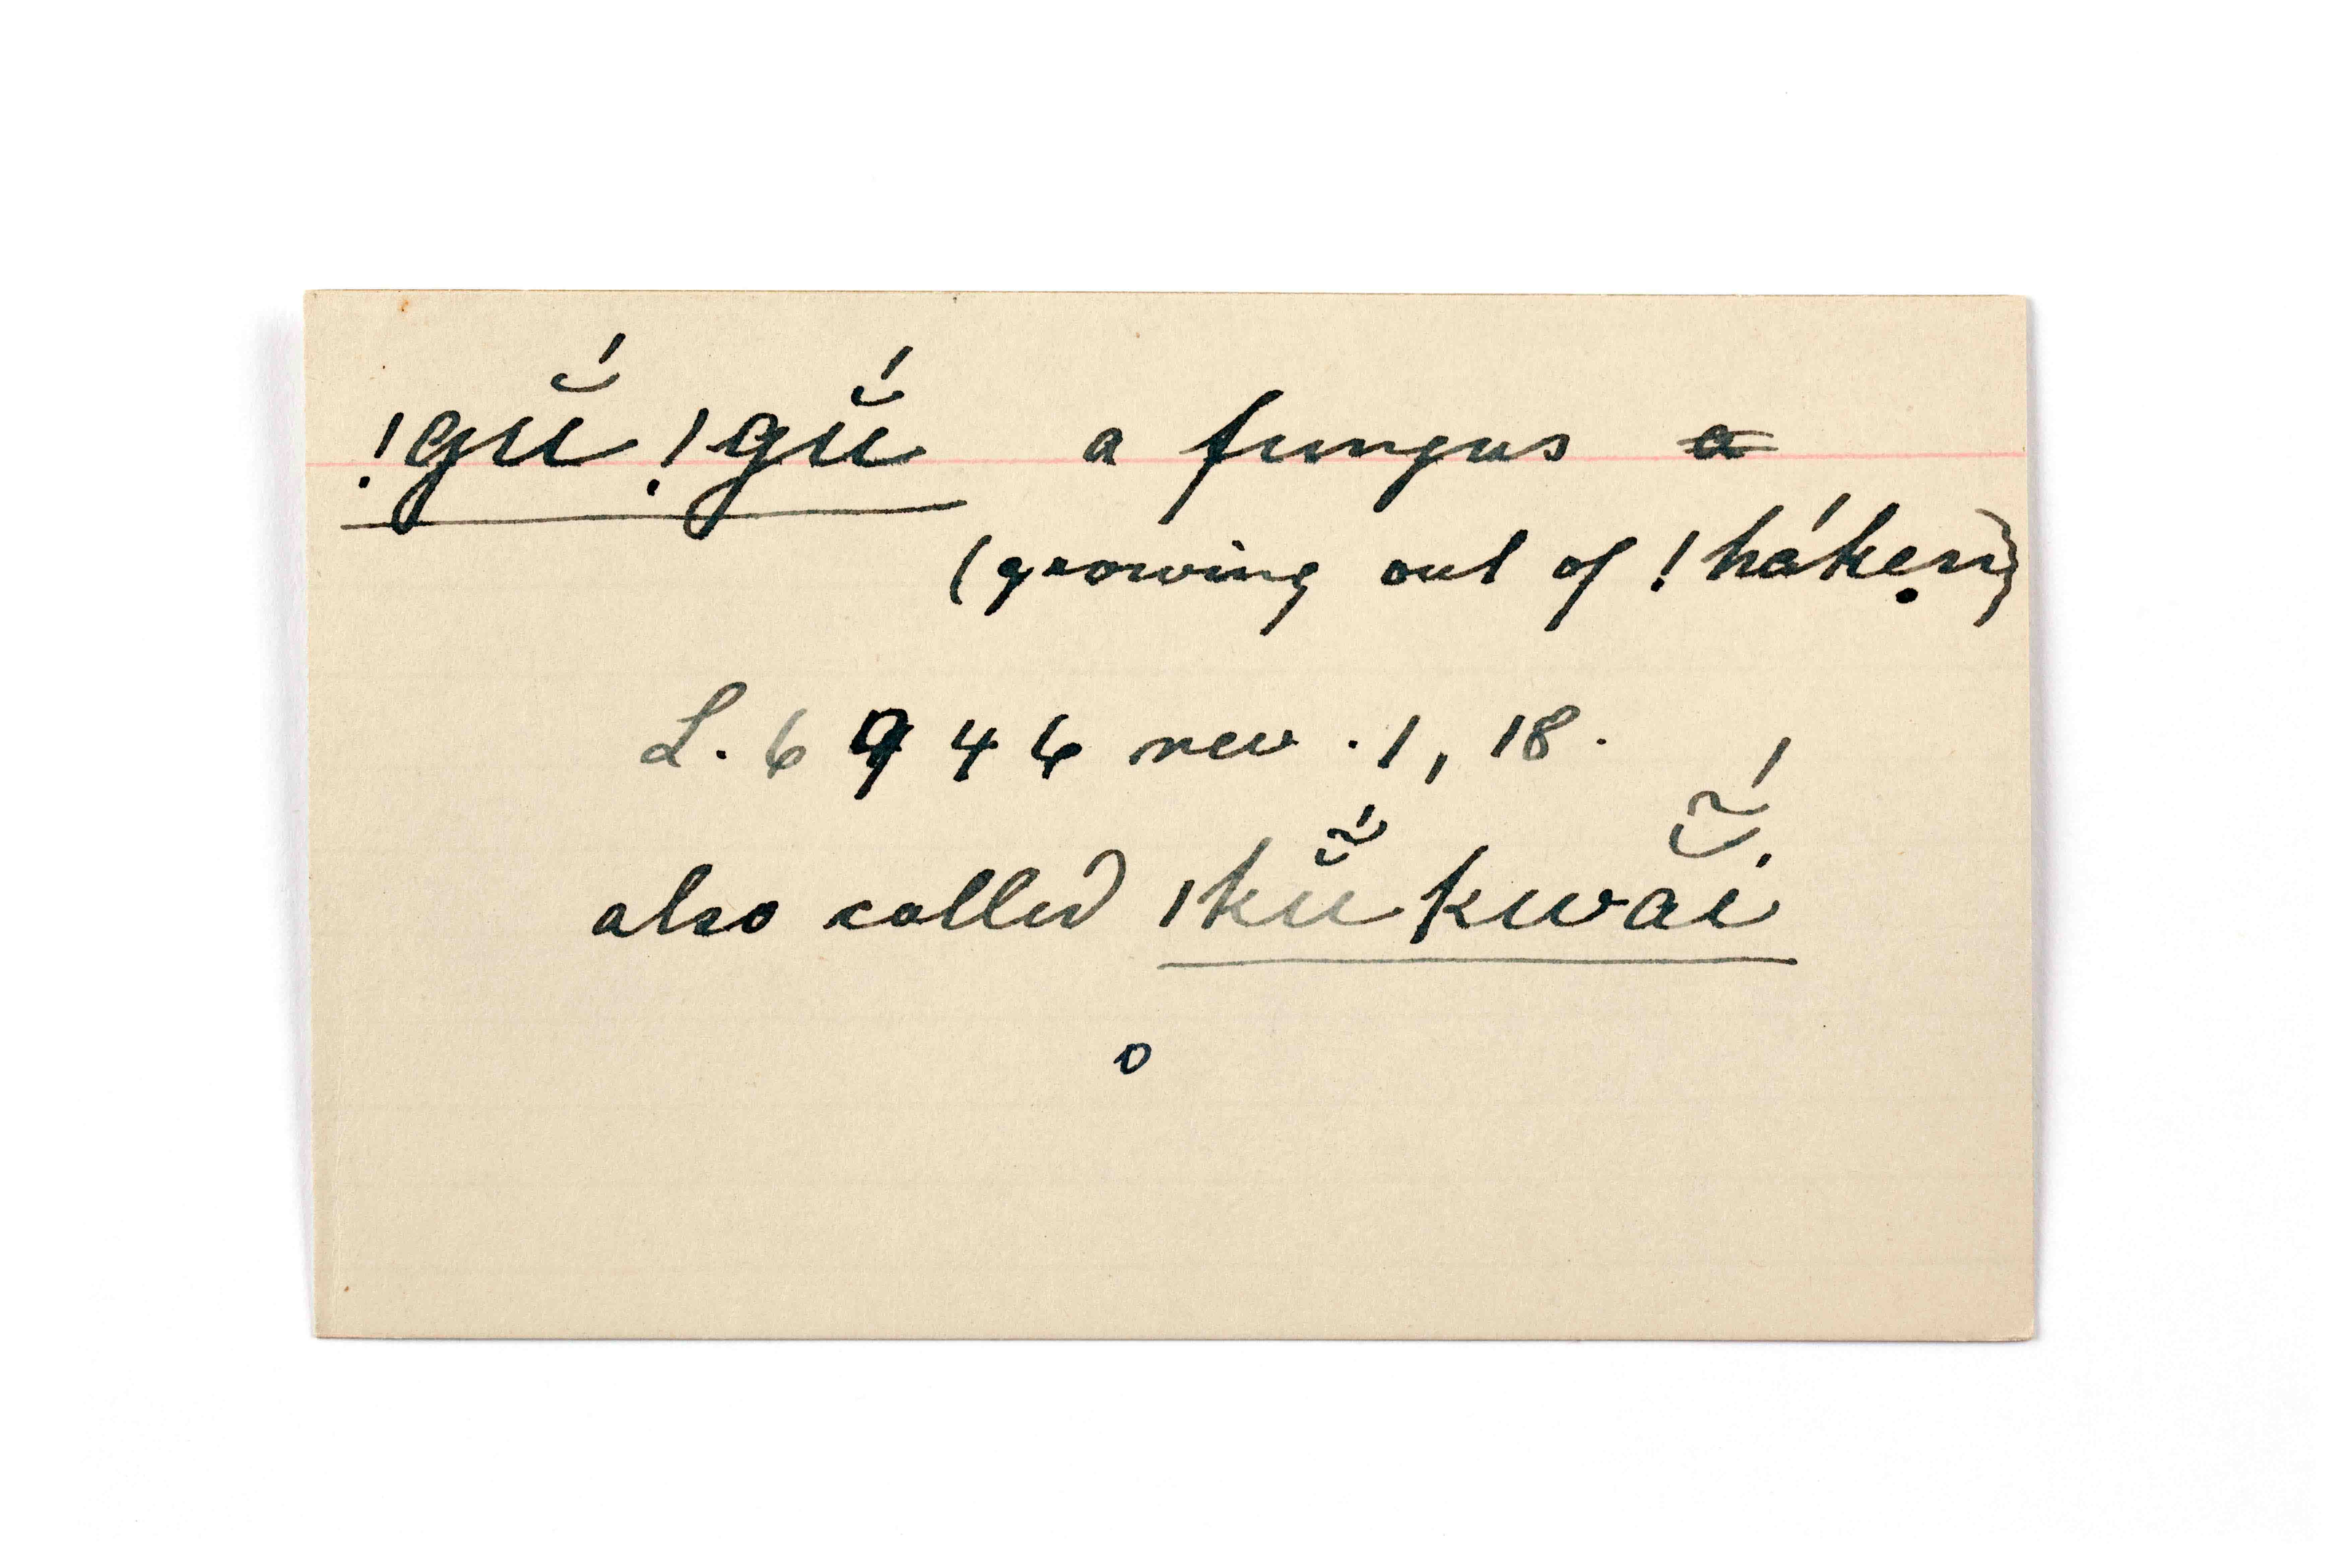 !gŭ́ !gŭ́ a fungus a
(growing out of !hákẹn)
L. 6946 rev. 1, 18.
also called ǀkŭ̃́ kwăĩ́
o